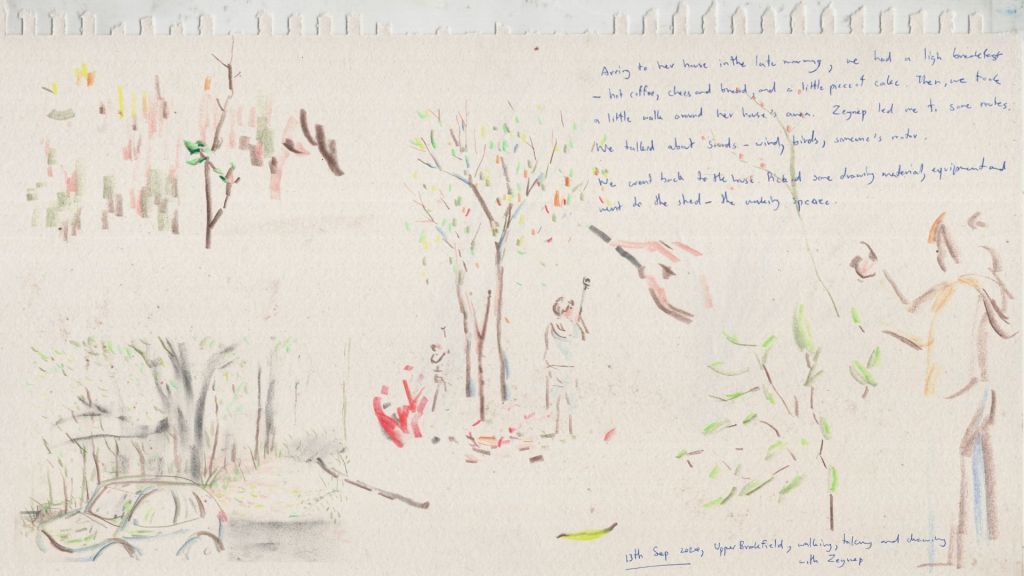 Arring to her house in the late morning, we had a ligh breakfast
– hot coffee, chees and bread, and a little piece of cake. Then, we took
a little walk around her house's area. Zeynep led me to some routes.
We talked about sounds – wind, birds, someone's motor.
We went back to the house. Picked some drawing material, equipment and
went to the shed – the making space.
13th Sep 2020, Upper Brookfield, walking, talking and drawing
with Zeynep